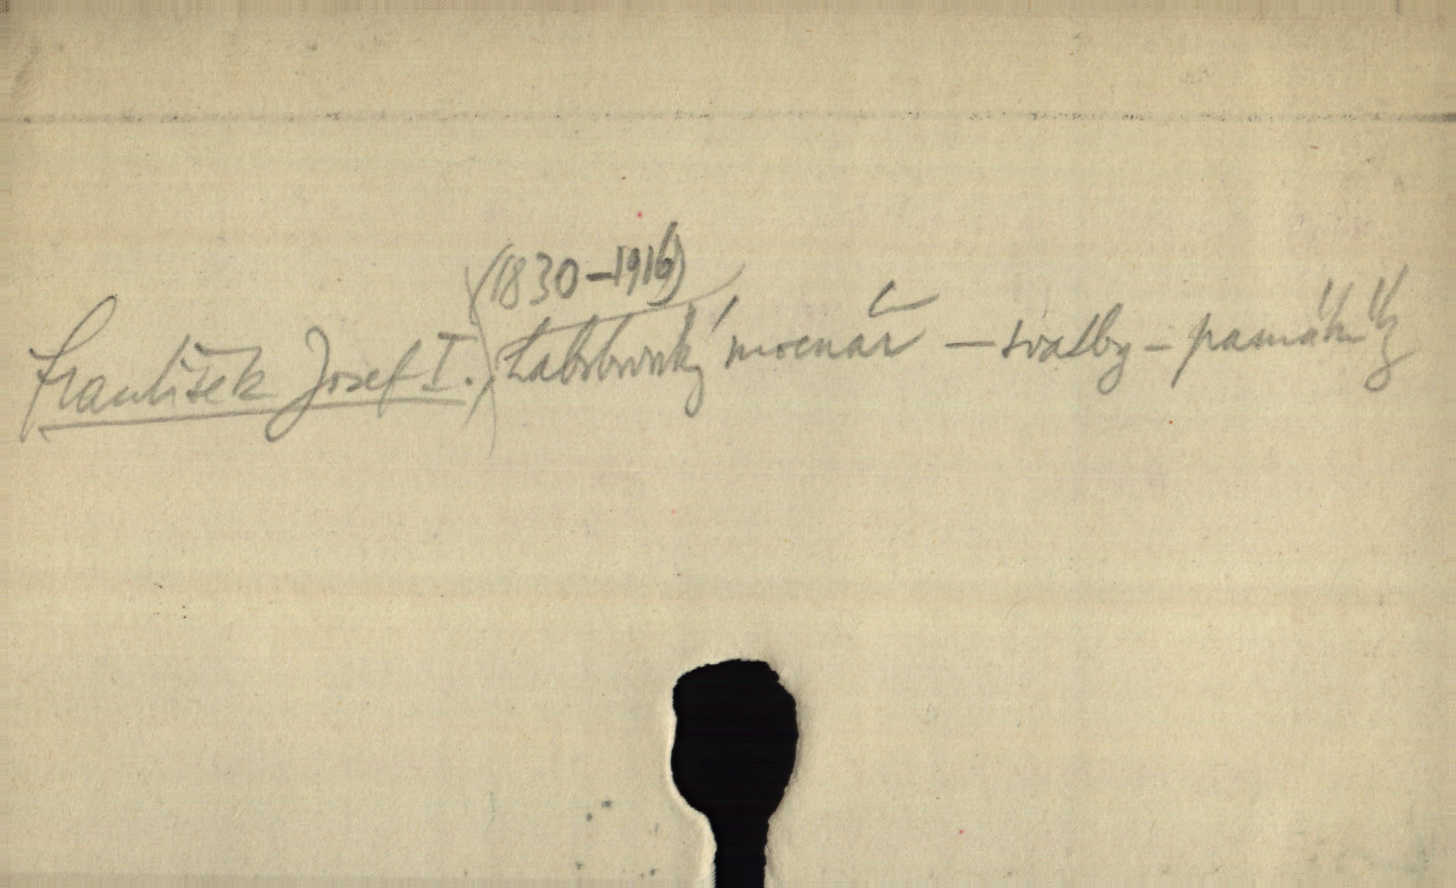 František Josef I., (1830-1916) habsburský mocnář - svatby - památníky